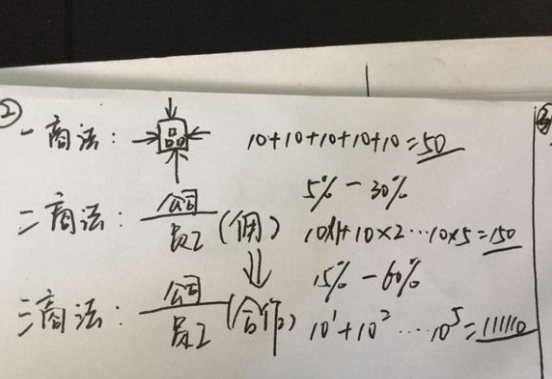 ②
一商法： 品 10+10+10+10+10=50
5% - 30%
二商法： 公司/员工(佣) 10x1+10×2…10×5=150
15% - 60%
三商法： 公司/员工(合作) 10¹+10²…10⁵=111110